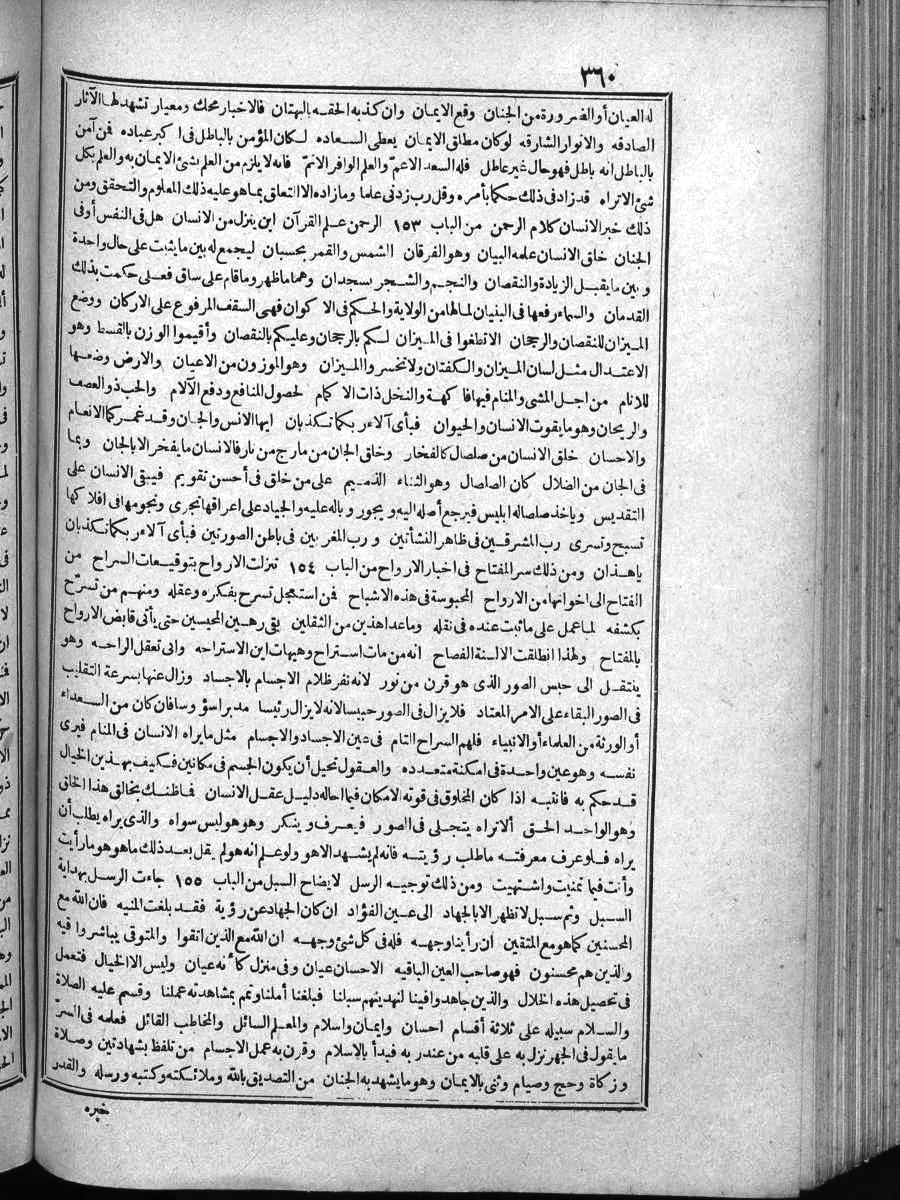 ٣٦٠
له العيان أو الضرورة من الجنان وقع الايمان وان كذبه الحقه بالبهتان فالاخبار محك ومعيار تشهد لها الآثار
الصادقه والانوار الشارقه لو كان مطلق الايمان يعطى السعاده لكان المؤمن بالباطل فى اكبر عباده فمن آمن
بالباطل انه باطل فهو حال غير عاطل فله السعد الاعم والعلم الوافر الاتم فانه لا يلزم من العلم بشئ الايمان به والعلم بكل
شئ الا تراه قد زاد فى ذلك حكما بأمره وقل رب زدنى علما وما زاده الا التعلق بما هو عليه ذلك المعلوم والتحقق ومن
ذلك خبر الانسان كلام الرحمن من الباب ١٥٣ الرحمن علم القرآن اين ينزل من الانسان هل فى النفس أو فى
الجنان خلق الانسان علمه البيان وهو الفرقان الشمس والقمر بحسبان ليجمع له بين ما يثبت على حال واحدة
وبين ما يقبل الزيادة والنقصان والنجم والشجر يسجدان وهما ما ظهر وما قام على ساق فعلى حكمت بذلك
القدمان والسماء رفعها فى البنيان لما لها من الولاية والحكم فى الاكوان فهى السقف المرفوع على الاركان ووضع
الميزان للنقصان والرجحان الا تطغوا فى الميزان لكم بالرجحان وعليكم بالنقصان وأقيموا الوزن بالقسط وهو
الاعتدال مثل لسان الميزان والكفتان ولا تخسروا الميزان وهو الموزون من الاعيان والارض وضعها
للانام من اجل المشى والمنام فيها فاكهة والنخل ذات الاكمام لحصول المنافع ودفع الآلام والحب ذو العصف
والريحان وهو ما يقوت الانسان والحيوان فبأى آلاء ربكما تكذبان ايها الانس والجان وقد غمركما الانعام
والاحسان خلق الانسان من صلصال كالفخار وخلق الجان من مارج من نار فالانسان ما يفخر الا بالجان وبما
فى الجان من الضلال كان الصلصال وهو الثناء الذميم على من خلق فى أحسن تقويم فيبقى الانسان على
التقديس وياخذ صلصاله ابليس فيرجع أصله اليه ويجور وباله عليه والجياد على اعراقها تجرى ونجومها فى افلاكها
تسبح وتسرى رب المشرقين فى ظاهر النشأتين ورب المغربين فى باطن الصورتين فبأى آلاء ربكما تكذبان
ياهذان ومن ذلك سر المفتاح فى اخبار الارواح من الباب ١٥٤ تنزلت الارواح بتوقيعات السراح من
الفتاح الى اخوانها من الارواح المحبوسة فى هذه الاشباح فمن استعجل تسرح بفكره وعقله ومنهم من تسرّح
بكشفه لما عمل على ما ثبت عنده فى نقله وما عدا هذين من الثقلين بقى رهين المحبسين حتى يأتى قابض الارواح
بالمفتاح ولهذا انطلقت الالسنة الفصاح انه من مات استراح وهيهات اين الاستراحه وانى تعقل الراحه وهو
ينتقل الى حبس الصور الذى هو قرن من نور لانه نفر ظلام الاجسام بالاجساد وزال عنها بسرعة التقليب
فى الصور البقاء على الامر المعتاد فلا يزال فى الصور حبيسا لانه لا يزال رئيسا مدبرا سؤوسا فان كان من السعداء
أو الورثة من العلماء أو الانبياء فلهم السراح التام فى عين الاجساد والاجسام مثل ما يراه الانسان فى المنام فيرى
نفسه وهو عين واحدة فى امكنة متعدده والعقول تحيل أن يكون الجسم فى مكانين فكيف بهذين الخيال
قد حكم به فانتبه اذا كان المخلوق فى قوته الامكان فيما احاله دليل عقل الانسان فما ظنك بخالق هذا الخلق
وهو الواحد الحق ألا تراه يتجلى فى الصور فيعرف وينكر وهو هو ليس سواه والذى يراه يطلب أن
يراه فلو عرف معرفته ما طلب رؤيته فانه لم يشهد الا هو ولو علم انه هو لم يقل بعد ذلك ما هو هو ما رأيت
وأنت فيما تمنيت واشتهيت ومن ذلك توجيه الرسل لايضاح السبل من الباب ١٥٥ جاءت الرسل بهداية
السبل وثم سبل لا تظهر الا بالجهاد الى عين الفؤاد ان كان الجهاد عن رؤية فقد بلغت المنيه فان الله مع
المحسنين كما هو مع المتقين ان رأينا وجهه فله فى كل شئ وجهه ان الله مع الذين اتقوا والمتوقى يباشر واقيه
والذين هم محسنون فهو صاحب العين الباقيه الاحسان عيان وفى منزل كأنه عيان وليس الا الخيال فتعمل
فى تحصيل هذه الخلال والذين جاهدوا فينا لنهدينهم سبلنا فبلغنا أملنا وتم بمشاهدته عملنا وقسم عليه الصلاة
والسلام سبيله على ثلاثة أقسام احسان وايمان واسلام والمعلم السائل والمخاطب القائل فعلمه فى السرّ
ما يقول فى الجهر نزل به على قلبه من عند ربه فبدأ بالاسلام وقرن به عمل الاجسام من تلفظ بشهادتين وصلاة
وزكاة وحج وصيام وثنى بالايمان وهو ما يشهد به الجنان من التصديق بالله وملائكته وكتبه ورسله والقدر
خيره